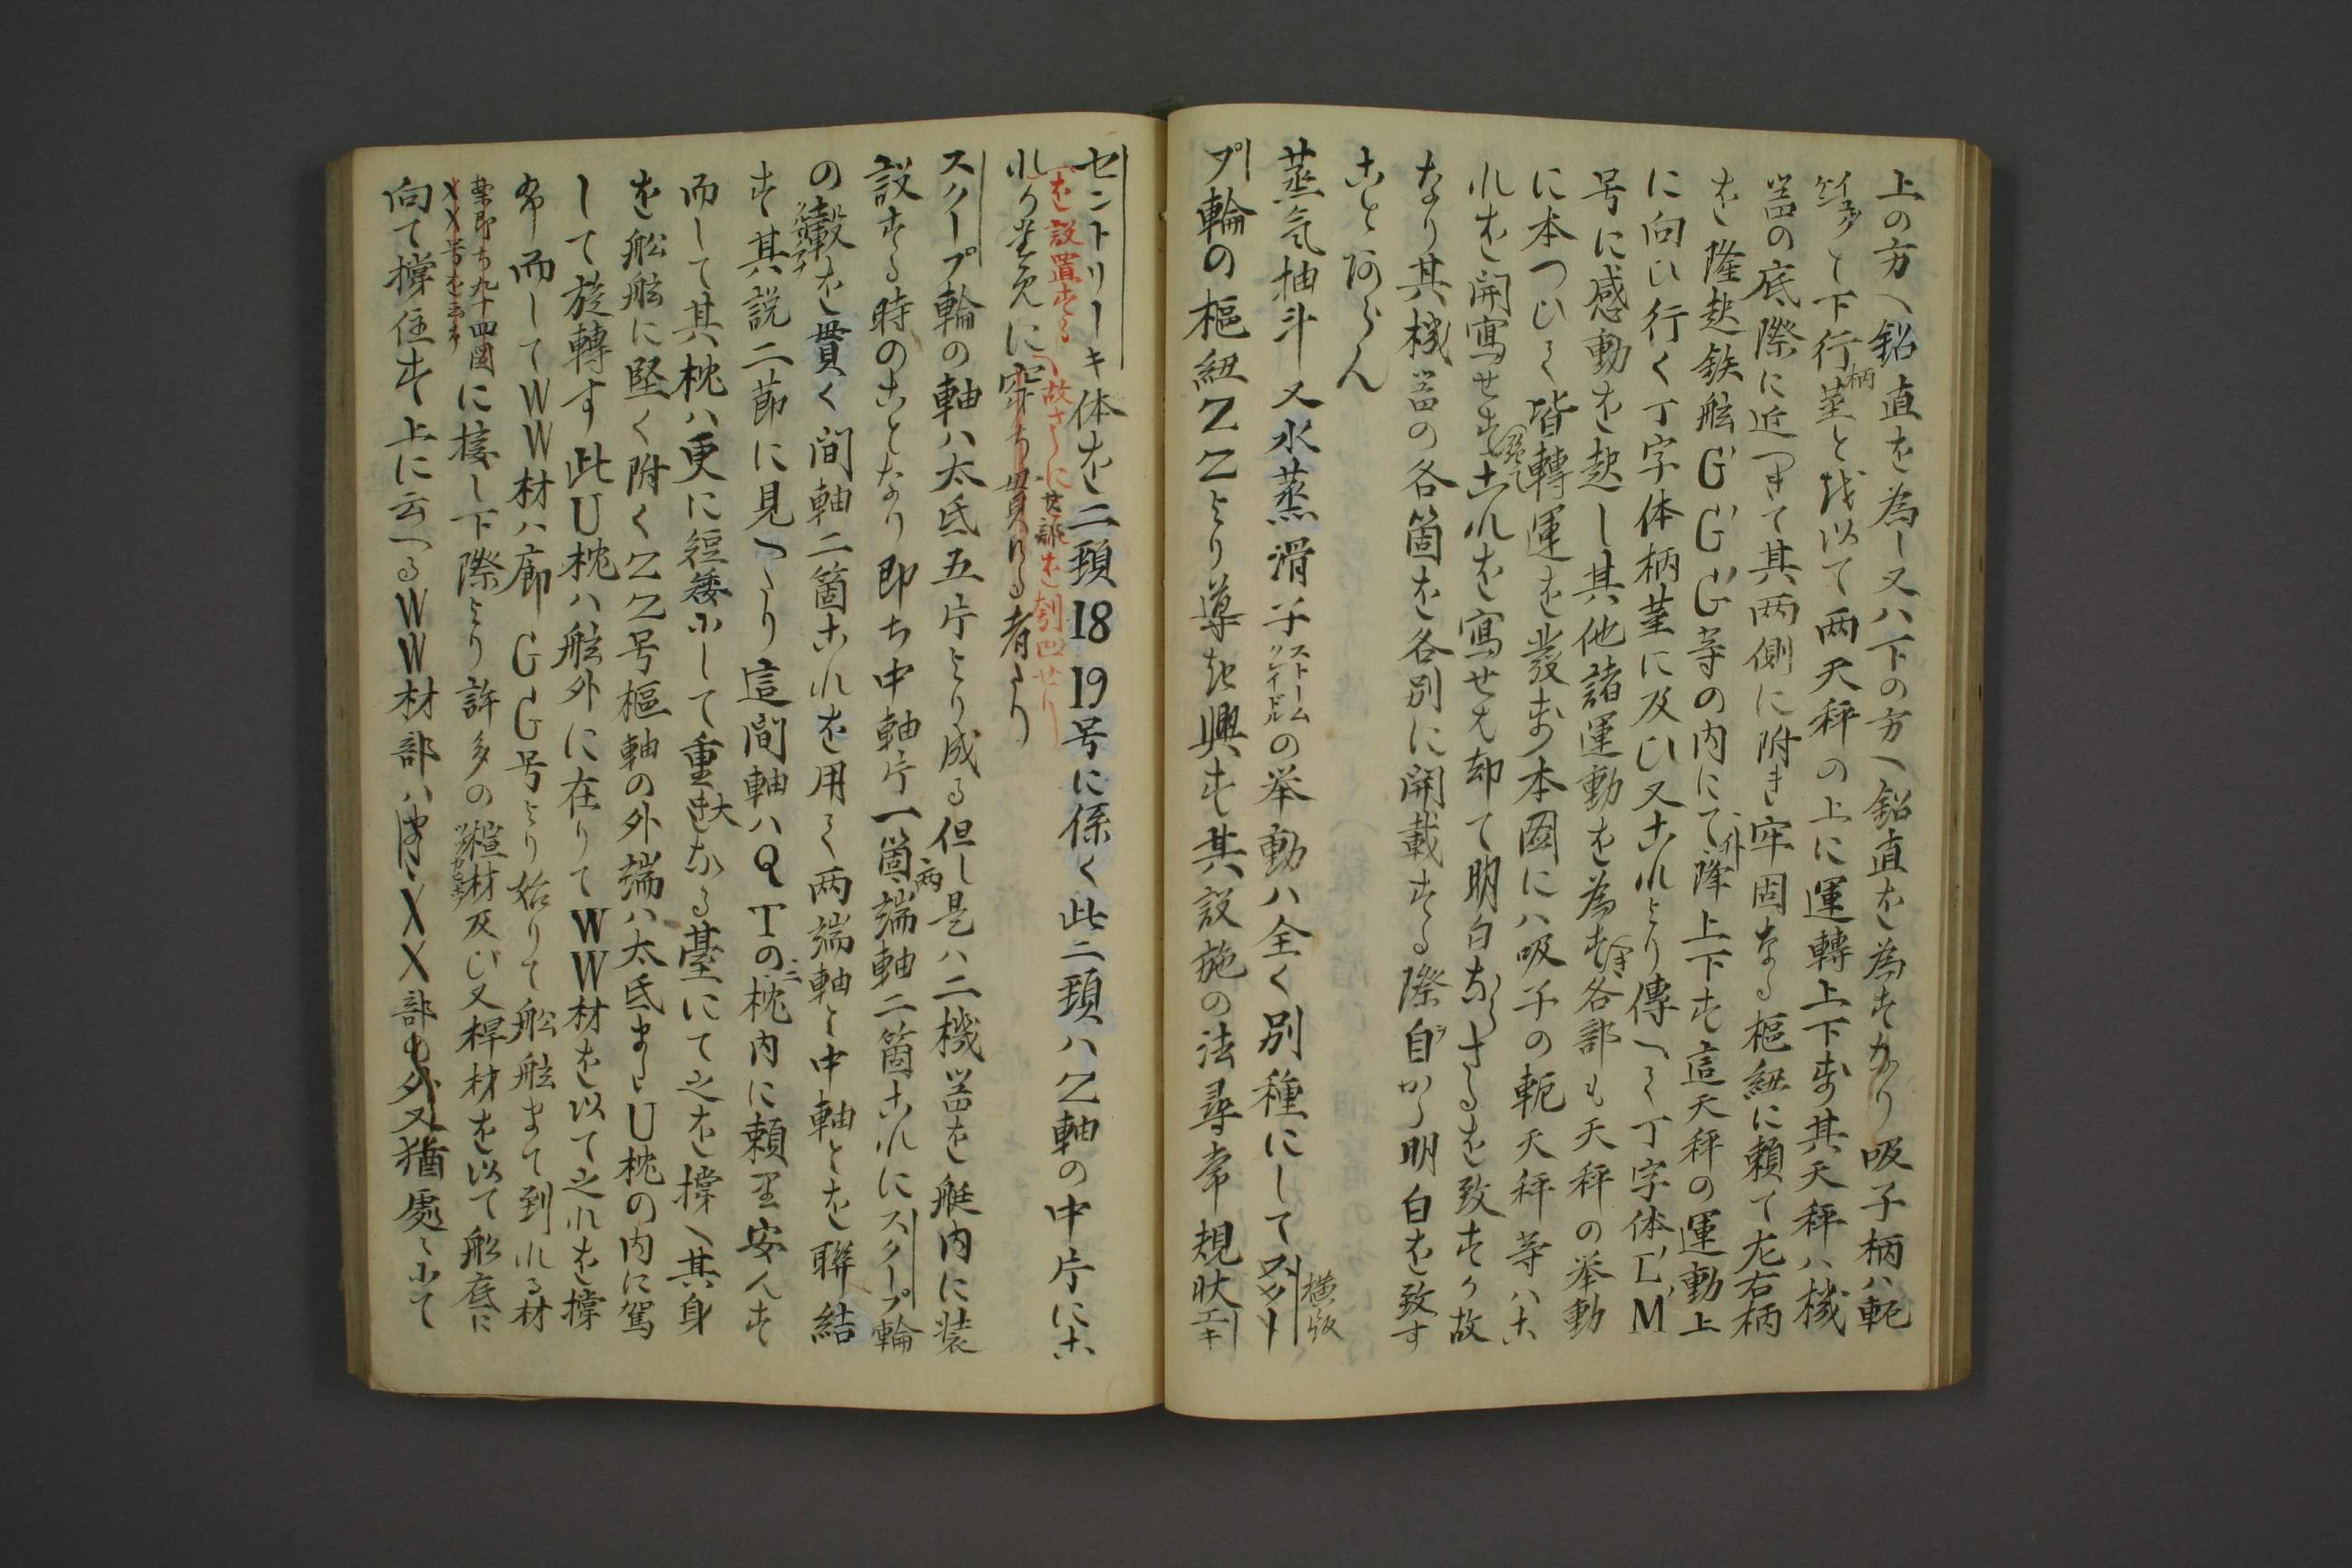 上の方へ鉛直を為し又ハ下の方へ鉛直を為すなり吸子柄ハ軛
下行柄茎とを以て両天秤の上に運轉上下す其天秤ハ機
器の底際に近つきて其両側に附き牢固なる枢紐に頼て左右柄
を隆起鉄舷G'G'G'等の内にて降上下す這天秤の運動上
に向ひ行く丁字体柄茎に及ひ又これより傳へて丁字体L'M'
号に感動を起し其他諸運動を為す各部も天秤の挙動
に本つひて皆轉運を發す本図にハ吸子の軛天秤等ハこ
れを開寫せすこれを寫せは却て明白ならさるを致すか故
なり其機器の各箇を各別に開載する際自から明白を致す
こと阿らん
蒸気抽斗又水蒸滑子の挙動ハ全く別種にしてスクリー
ストーム
クレイドル
横版
プ輪の枢紐ZZより導き興す其設施の法尋常規状エキ
セントリーキ体を二頚18 19号に係く此二頚ハZ軸の中片にこ
を設置する
故さらに
を刳凹せり
れか
に穿ち貫ける者なり
スクープ輪の軸ハ太氐五片より成る但し是ハ二機器を艇内に装
設する時のことなり即ち中軸片一箇両端軸二箇これにスクープ輪
の轂を貫く間軸二箇これを用て両端軸と中軸とを聯結
す其説二節に見へたり這間軸ハQTの二枕内に頼里安んす
而して其枕ハ更に短矮にして重大なる臺にて之を撑へ其身
を舩舷に堅く附くZZ号枢軸の外端ハ太氐またU枕の内に駕
して旋轉す此U枕ハ舷外に在りてWW材を以て之れを撑
ふ而してWW材ハ廊GG号より始りて舩舷まて到れる材
案即ち九十四図
XX号を云ふ
に接し下際より許多の 材及ひ又桿材を以て舩底に
向て撑住す上に云へるWW材部ハ XX部の外又猶處々にて